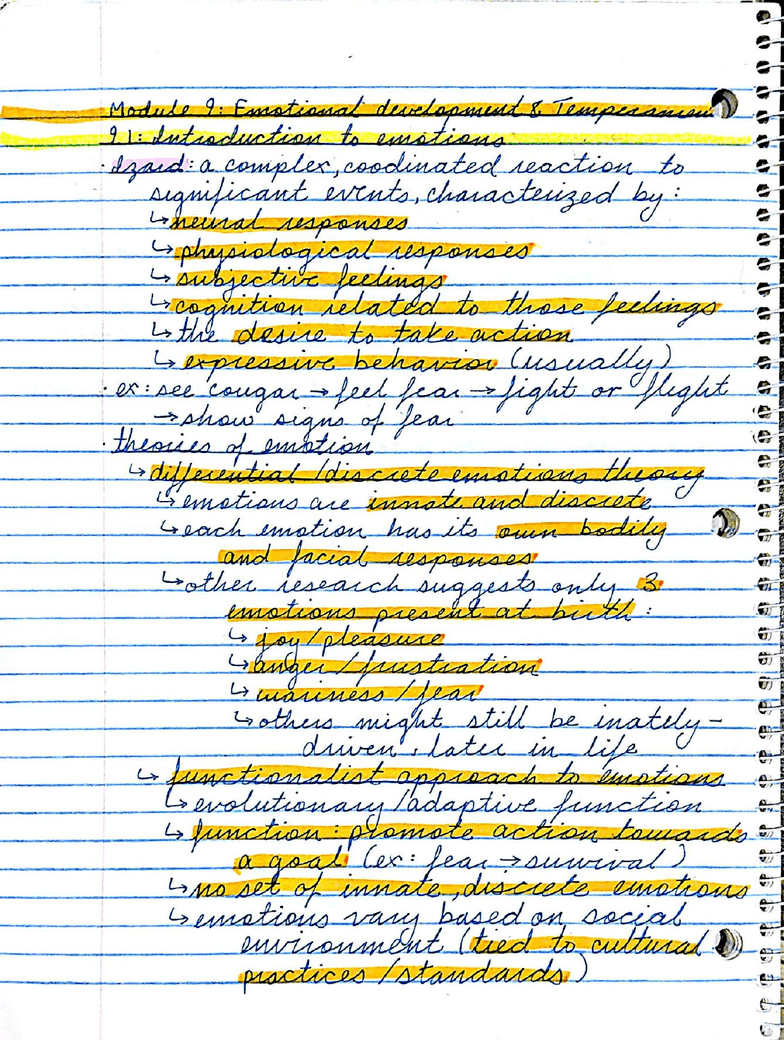 Module 9: Emotional development & Temperamen
9.1: Introduction to emotions
· Izard: a complex, coodinated reaction to
significant events, characterized by:
↳ neural responses
↳ physiological responses
↳ subjective feelings
↳ cognition related to those feelings
↳ the desire to take action
↳ expressive behavior (usually)
· ex: see cougar → feel fear → fight or flight
→ show signs of fear
· theories of emotion
↳ differential/discrete emotions theory
↳ emotions are innate and discrete
↳ each emotion has its own bodily
and facial responses
↳ other research suggests only 3
emotions present at birth:
↳ joy/pleasure
↳ anger/frustration
↳ wariness/fear
↳ others might still be inately-
driven, later in life
↳ functionalist approach to emotions
↳ evolutionary/adaptive function
↳ function: promote action towards
a goal (ex: fear → survival)
↳ no set of innate, discrete emotions
↳ emotions vary based on social
environment (tied to cultural
practices/standards)